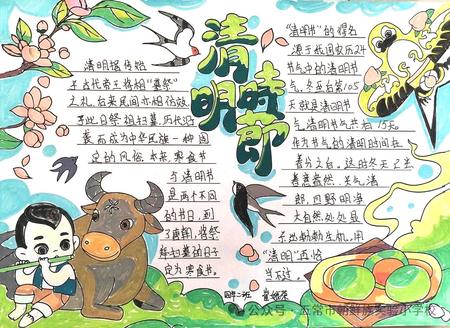 清明時節
清明据传始
于古代帝王将相“墓祭”
之礼,后来民间亦相仿效,
于此日祭祖扫墓,历代沿
袭而成为中华民族一种固
定的风俗。本来,寒食节
与清明节
是两个不同
的节日,到
了唐朝,将祭
拜扫墓的日子
定为寒食节。
“清明节”的得名
源于我国农历24
节气中的清明节
气,冬至后第105
天就是清明节
气,清明节气共有15天。
作为节气的清明时间在
春分之后。这时冬天已去,
春意盎然,天气清
朗,四野明净,
大自然处处显
示出勃勃生机。用
“清明”再恰
当不过
四年二班
公众号·五常市朝鲜族实验小学校